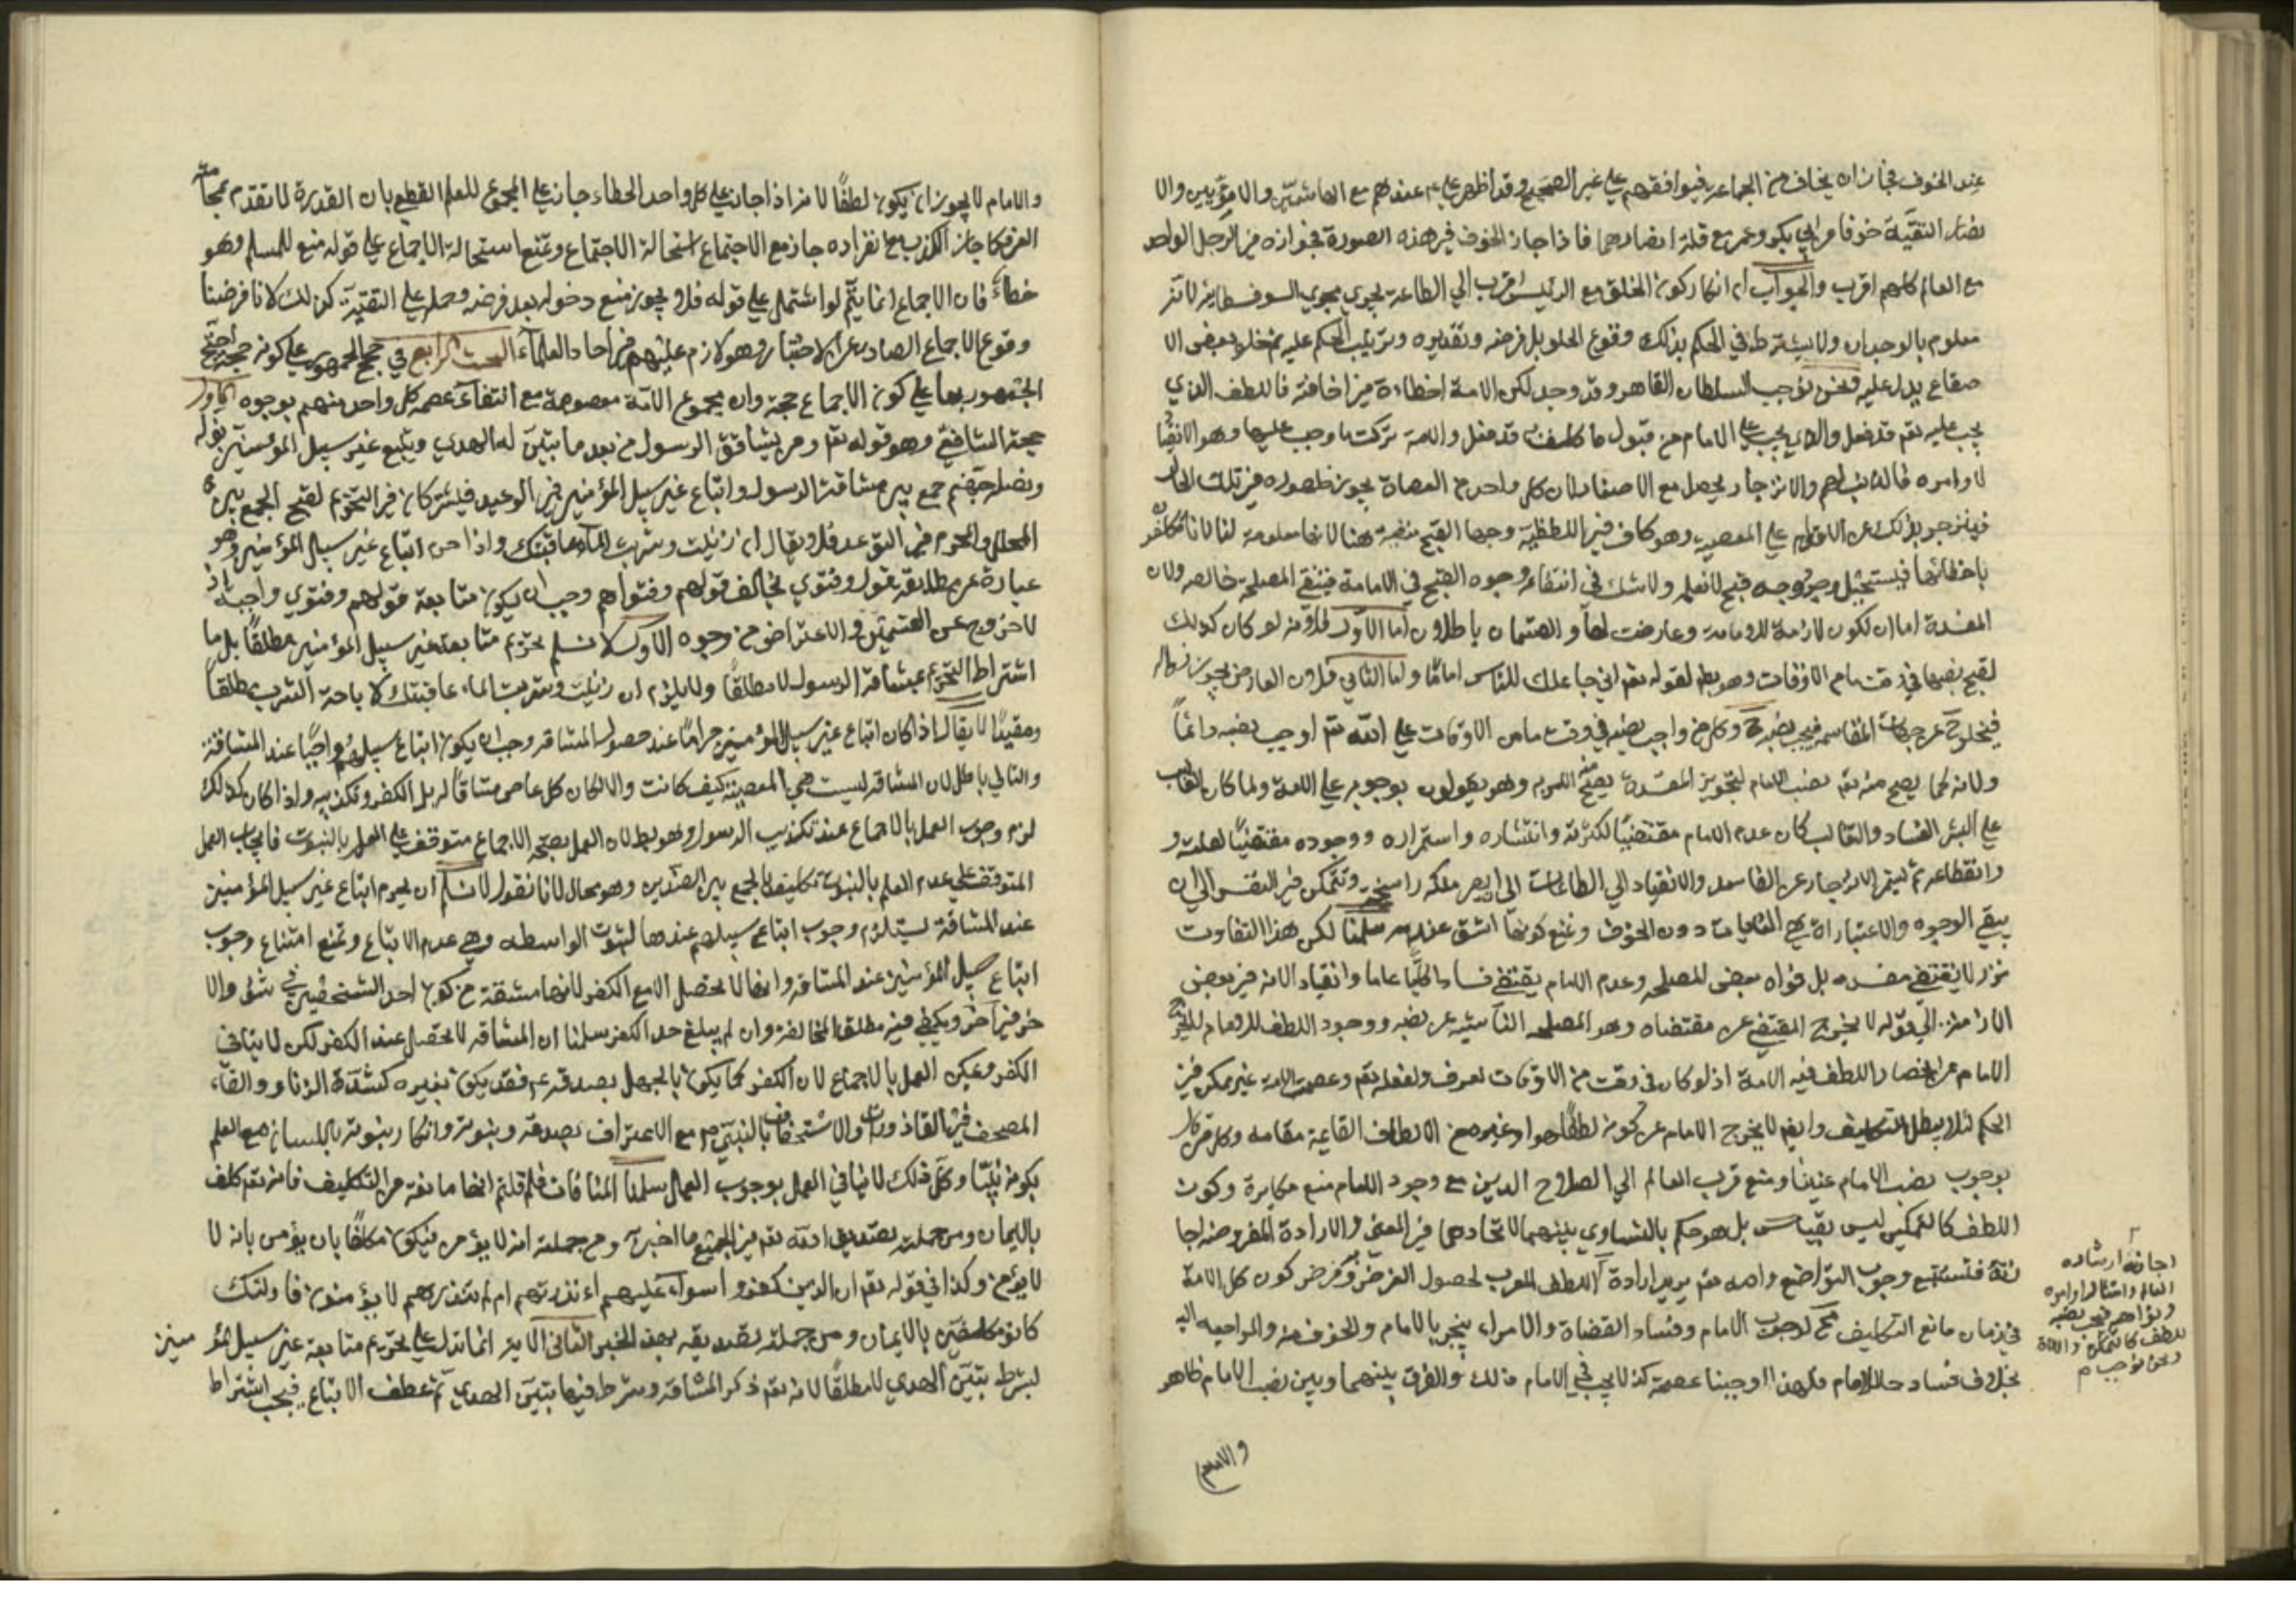 عند الخوف فجاز ان يخاف من الجماعة فيوافقهم على غير الصحيح وقد اظهر علي ع عندهم مع الهاشميين والامويين والا
نصار التقية خوفا من ابي بكر وعمر مع قلة انصارهما فاذا جاز الخوف في هذه الصورة فجوازه من الرجل الواحد
مع العالم كلهم اقرب والجواب ان انكار كون الخلق مع الرئيس اقرب الى الطاعة يجري مجرى السوفسطائية لانه
معلوم بالوجدان ولا يشترط في الحكم بذلك وقوع الخلو بل فرضه وتقديره وترتيب الحكم عليه ثم خلو بعض الا
صقاع يدل عليه ونحن نوجب السلطان القاهر وقد وجد لكن الامة اخطاءة من اخافته فاللطف الذي
يجب عليه تع قد فعل والذي يجب على الامام من قبول ما كلف به قد فعل والامة تركت ما وجب عليها وهو الانقياد
لاوامره فالذنب لهم والانزجار يحصل مع الاصقاء لان كل واحد من العصاة يجوز ظهوره في تلك الحال
فينزجر بذلك عن الاقدام على المعصية وهو كاف في اللطفية وجهات القبح منفية هنا لانها معلومة لنا لانا مكلفون
باجتنابها فيستحيل وجود وجه قبح لا نعلمه ولا شك في انتفاء وجوه القبح في الامامة فتبقى المصلحة خالصة ولان
المفسدة اما ان تكون لازمة للامامة وعارضت لها والقسمان باطلان اما الاول فلانه لو كان كذلك
لقبح نصبها في وقت ما من الاوقات وهو بط لقوله تع اني جاعلك للناس اماما واما الثاني فلان العارض يجوز زواله
فيخلو ح عن جهات المفاسد فيجب نصبه ح وكل من اوجب نصبه في وقت ما من الاوقات على الله تع اوجب نصبه دائماً
ولانه كما يصح منه تع نصب الامام لتجويز المفسدة يصح الامر به وهم يقولون بوجوبه على الامة ولما كان الغالب
على البشر الفساد والتغالب كان عدم الامام مقتضيا لكثرته وانتشاره واستمراره ووجوده مقتضيا لقلته و
وانقطاعه ثم يثمر الانزجار عن الفاسد والانقياد الى الطاعات الى ان يصير ملكة راسخة وتتمكن في النفس الى ان
يبقى الوجوه والاعتبارات هي الغايات دون الخوف ونمنع كونها اشق عنده سلمنا لكن هذا التفاوت
نزر لا يقتضي مفسدة بل فواة بعض المصلحة وعدم الامام يقتضي فسادا كليا عاما وانقياد الامة في بعض
الازمنة الى قوله لا يخرج المقتضي عن مقتضاه وهو المصلحة الناشئة عن نصبه ووجود اللطف للامام لا يخرج
الامام عن انحصار اللطف فيه الامة اذ لو كان في وقت من الاوقات لعرف ولفعله تع وعصمة الامة غير ممكن في
الحكم لئلا يبطل التكليف وايضا لا يخرج الامام عن كونه لطفا هو او غيره من الالطاف القايمة مقامه وكل من قال
بوجوب نصب الامام عينا ومنع قرب العالم الى الصلاح الدين مع وجود الامام منع مكابرة وكون
اللطف كالتمكين ليس بقياس بل هو حكم بالتساوي بينهما لاتحادهما في المعنى والارادة المفروضة اجا
زته فتستتبع وجوب التواضع والله تع يريد ارادة اللطف المقرب لحصول الغرض وفرض كون كل الامة
في زمان مانع التكليف مح لوجوب الامام وفساد القضاة والامراء ينجبر بالامام والخوف منه والمراجعة اليه
بخلاف فساد حال الامام فلهذا اوجبنا عصمته كذلا يجب في الامام ذلك والفرق بينهما وبين نصب الامام ظاهر
اجازته ارشاده
العالم وامتثال اوامره
ونواهيه فيجب نصبه
للطف كالتمكين والارادة
ونحن نوجب م
والامام
والامام لا يجوز ان يكون لطفًا لانه اذا جاز على كل واحد الخطاء جاز على المجموع للعلم القطعي بان القدرة لما تقدم
الفرق كما جاز الكذب مع انفراده جاز مع الاجتماع استحالة الاجتماع ونمنع استحالة الاجماع على قوله منع للمسلم وهو
خطاءً فان الاجماع انما يتم لو اشتمل على قوله فلا يجوز منع دخوله بعد فرضه وحمله على التقية كذلك لانا فرضنا
وقوع الاجماع الصادر عن الاختيار وهو لازم عليهم في احاد العلماء البحث الرابع في حجج الجمهور على كونه حجة احتج
الجمهور بها على كون الاجماع حجة وان مجموع الامة معصومة مع انتفاء عصمة كل واحد منهم بوجوه الاول
حجة الشافعي وهو قوله تع ومن يشاقق الرسول من بعد ما تبين له الهدى ويتبع غير سبيل المؤمنين نوله
ونصله جهنم جمع بين مشاقة الرسول واتباع غير سبيل المؤمنين في الوعيد فيشتركان في التحريم لقبح الجمع بين
المحلل والمحرم في التوعد فلا يقال ان زنيت وشربت الماء عاقبتك واذا حرم اتباع غير سبيل المؤمنين وهو
عبارة عن مطابقة قول وفتوى تخالف قولهم وفتواهم وجب ان يكون متابعة قولهم وفتوى واجبة اذ
لا خروج عن القسمين والاعتراض من وجوه الاول لا نسلم تحريم متابعة غير سبيل المؤمنين مطلقًا بل ما
اشتراط التحريم بمشاقة الرسول لا مطلقًا ولا يلزم ان زنيت وشربت الماء عاقبتك لا باحة الشرب مطلقاً
ومقيدًا لا يقال اذا كان اتباع غير سبيل المؤمنين حرامًا عند حصول المشاقة وجب ان يكون اتباع سبيلهم واجبًا عند المشاقة
والتالي باطل لان المشاقة ليست هي المعصية كيف كانت والا لكان كل عاص مشاقا له بل الكفر وتكذيبه واذا كان كذلك
لزم وجوب العمل بالاجماع عند تكذيب الرسول وهو بط لان العلم بصحة الاجماع متوقف على العلم بالنبوت فايجاب العمل
المتوقف على عدم العلم بالنبوت تكليف بالجمع بين الضدين وهو محال لانا نقول لا نسلم ان تحريم اتباع غير سبيل المؤمنين
عند المشاقة يستلزم وجوب اتباع سبيلهم عندها لثبوت الواسطة وهي عدم الاتباع ونمنع امتناع وجوب
اتباع سبيل المؤمنين عند المشاقة وانها لا تحصل الا مع الكفر لانها مشقة من كون احد الشخصين في شق والا
خر في آخر ويكفي فيه مطلق المخالفة وان لم يبلغ حد الكفر سلمنا ان المشاقة لا تحصل عند الكفر لكن لا ينافي
الكفر وعكس العمل بالاجماع لان الكفر كما يكون بالجهل بصدقه ع فقد يكون بغيره كشد الزنار والقاء
المصحف في القاذورات والاستخفاف بالنبي ص مع الاعتراف بصدقه وبنبوته وانكار نبوته باللسان مع العلم
بكونه نبيا وكل ذلك لا ينافي العمل بوجوب العمل سلمنا المنافات فلم قلتم انها مانعة من التكليف فانه تع كلف
بالايمان ومن جملته تصديق الله تع في الجميع ما اخبر ومن جملته انه لا يؤمن فيكون مكلفًا بان يؤمن بانه لا
لا يؤمن وكذا في قوله تع ان الذين كفروا سواء عليهم ءانذرتهم ام لم تنذرهم لا يؤمنون فاولئك
كانوا مكلفين بالايمان ومن جملة تصديقه بهذا الخبر الثاني الاية انما تدل على تحريم متابعة غير سبيل المؤمنين
بشرط تبين الهدى لا مطلقًا لانه تع ذكر المشاقة وشرط فيها تبين الهدى ثم عطف الاتباع فيجب اشتراط